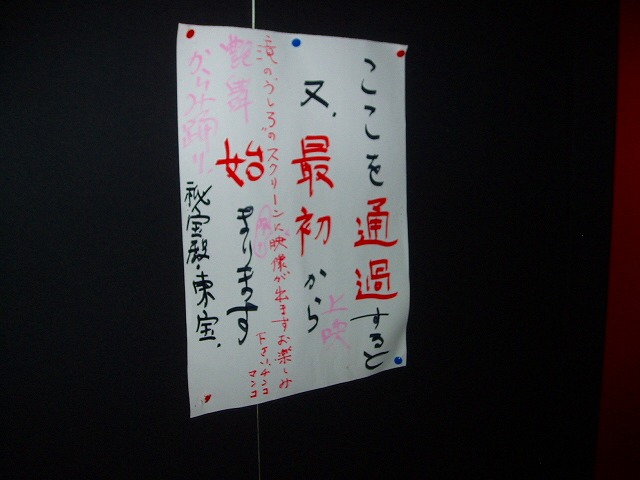 ここを通過すると
又、最初から
上映
滝のうしろのスクリーンに映像が出ますお楽しみ
下さい、チンコ
マンコ
始まります
艶舞
からみ踊り、
秘宝殿・東宝、